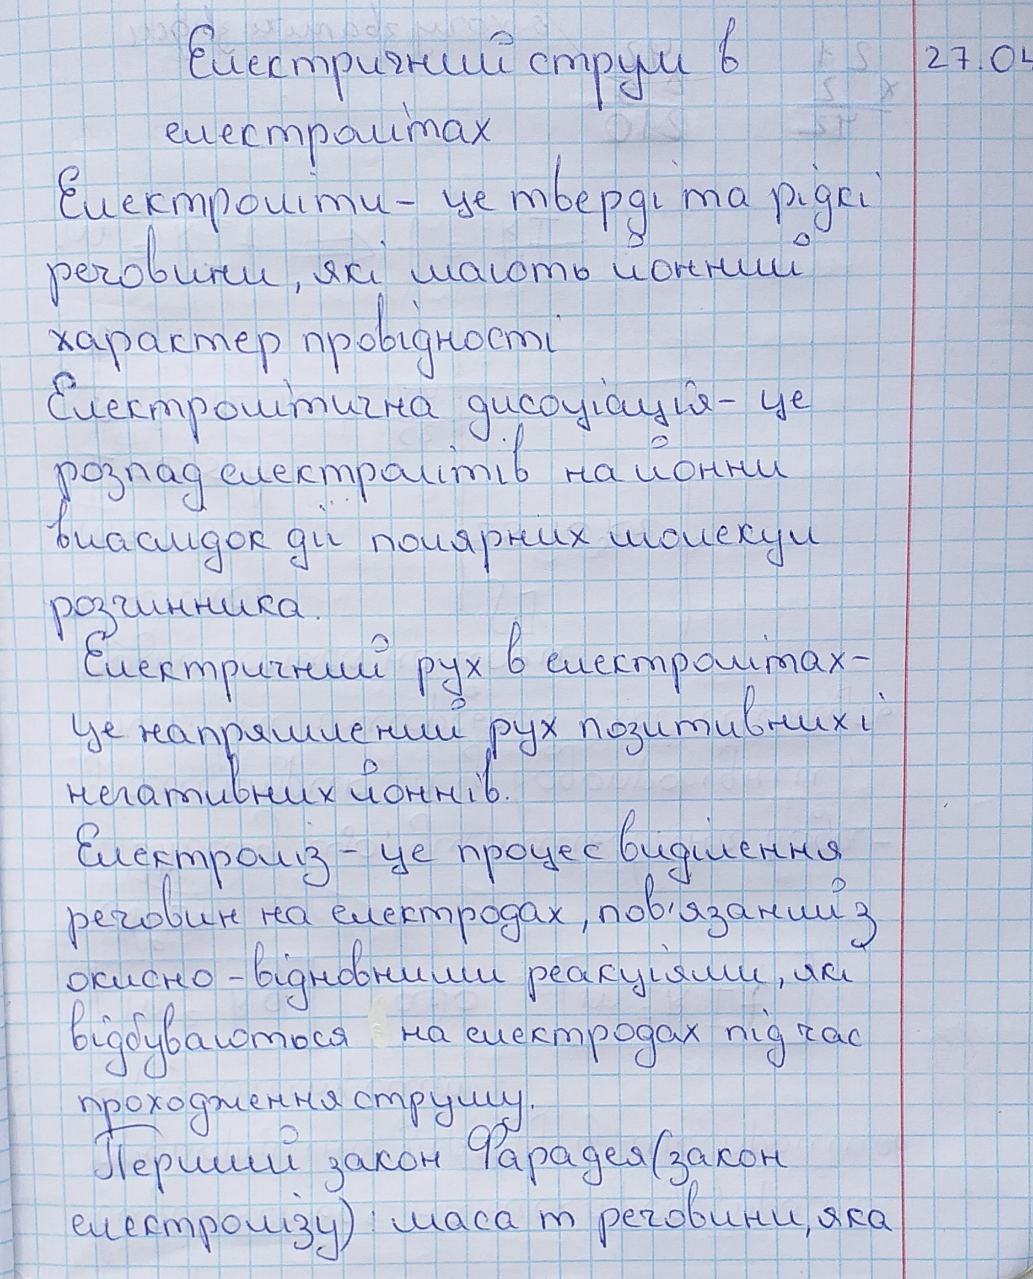 Електричний струм в
27.04
електролітах
Електроліти - це тверді та рідкі
речовини, які мають йонний
характер провідності
Електролітична дисоціація - це
розпад електролітів на йонни
внаслидок дії полярних молекул
розчинника.
Електричний рух в електролітах -
це напрямлений рух позитивних і
негативних йоннів.
Електроліз - це процес виділення
речовин на електродах, пов'язаний з
окисно-відновними реакціями, які
відбуваються на електродах під час
проходження струму.
Перший закон Фарадея (закон
електролізу): маса m речовини, яка